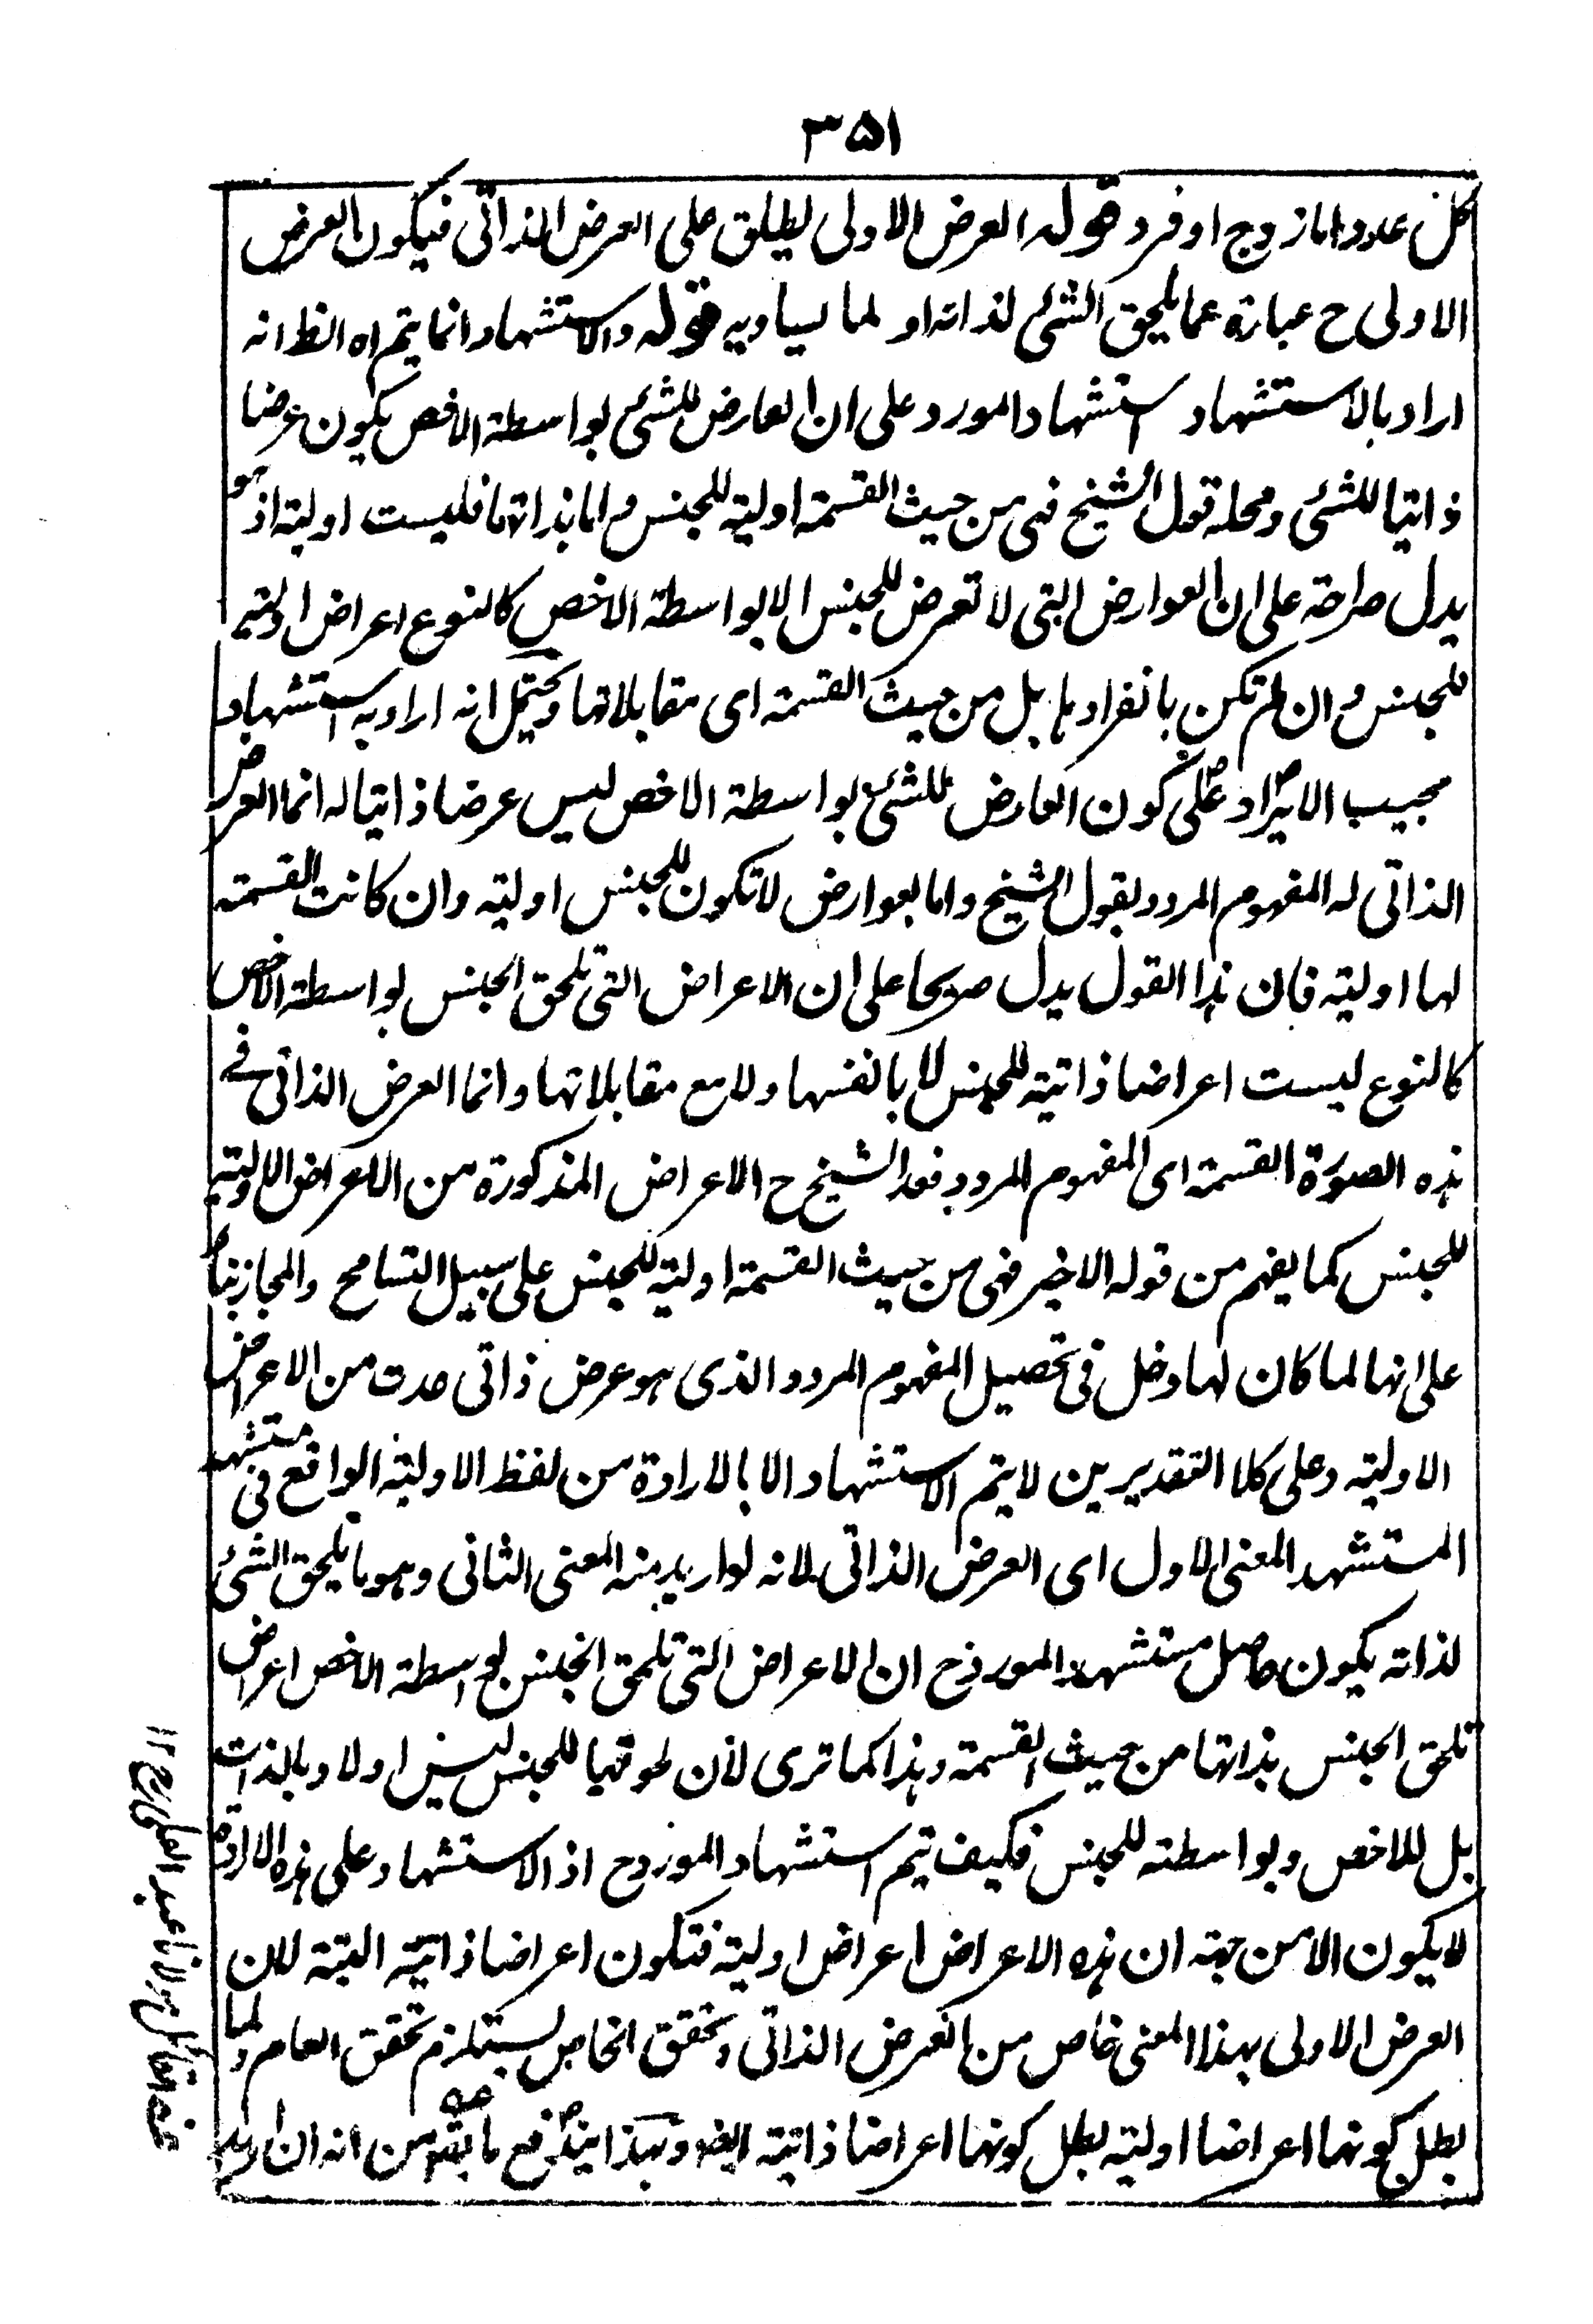 ۳۵۱
كل عدد اما زوج او فرد قوله العرض الاولى يطلق على العرض الذاتى فيكون العرض
الاولى ح عبارة عما يلحق الشئ لذاته او لما يساويه قوله والاستشهاد انما يتم اه الظ انه
اراد بالاستشهاد استشهاد المورد على ان العارض للشئ بواسطة الاخص يكون عرضا
ذاتيا للشئ ومحله قول الشيخ فهى من حيث القسمة اولية للجنس واما بذاتها فليست اولية اذ هو
يدل صراحة على ان العوارض التى لا تعرض للجنس الا بواسطة الاخص كالنوع اعراض اولية
للجنس وان لم تكن بانفرادها بل من حيث القسمة اى مقابلاتها ويحتمل انه اراد به استشهاد
مجيب الايراد على كون العارض للشئ بواسطة الاخص ليس عرضا ذاتيا له انما العرض
الذاتى له المفهوم المردد بقول الشيخ واما بعوارض لا تكون للجنس اولية وان كانت القسمة
لها اولية فان هذا القول يدل صريحا على ان الاعراض التى تلحق الجنس بواسطة الاخص
كالنوع ليست اعراضا ذاتية للجنس لا بانفسها ولا مع مقابلاتها وانما العرض الذاتى فى
هذه الصورة القسمة اى المفهوم المردد فعد الشيخ ح الاعراض المذكورة من الاعراض الاولية
للجنس كما يفهم من قوله الاخير فهى من حيث القسمة اولية للجنس على سبيل التسامح والمجاز بناء
على انها لما كان لها دخل فى تحصيل المفهوم المردد الذى هو عرض ذاتى عدت من الاعراض
الاولية وعلى كلا التقديرين لا يتم الاستشهاد الا بالارادة من لفظ الاولية الواقع فى مستشهد
المستشهد المعنى الاول اى العرض الذاتى لانه لو اريد منه المعنى الثانى وهو ما يلحق الشئ
لذاته يكون حاصل مستشهد المورد ح ان الاعراض التى تلحق الجنس بواسطة الاخص اعراض
تلحق الجنس بذاتها من حيث القسمة وهذا كما ترى لان لحوقها للجنس ليس اولا وبالذات
بل للاخص وبواسطته للجنس فكيف يتم استشهاد المورد ح اذ الاستشهاد على هذه الارادة
لا يكون الا من جهة ان هذه الاعراض اعراض اولية فتكون اعراضا ذاتية البتة لان
العرض الاولى بهذا المعنى خاص من العرض الذاتى وتحقق الخاص يستلزم تحقق العام ولما
بطل كونها اعراضا اولية بطل كونها اعراضا ذاتية ايضا وبهذا يندفع ما يتوهم من انه ان اريد